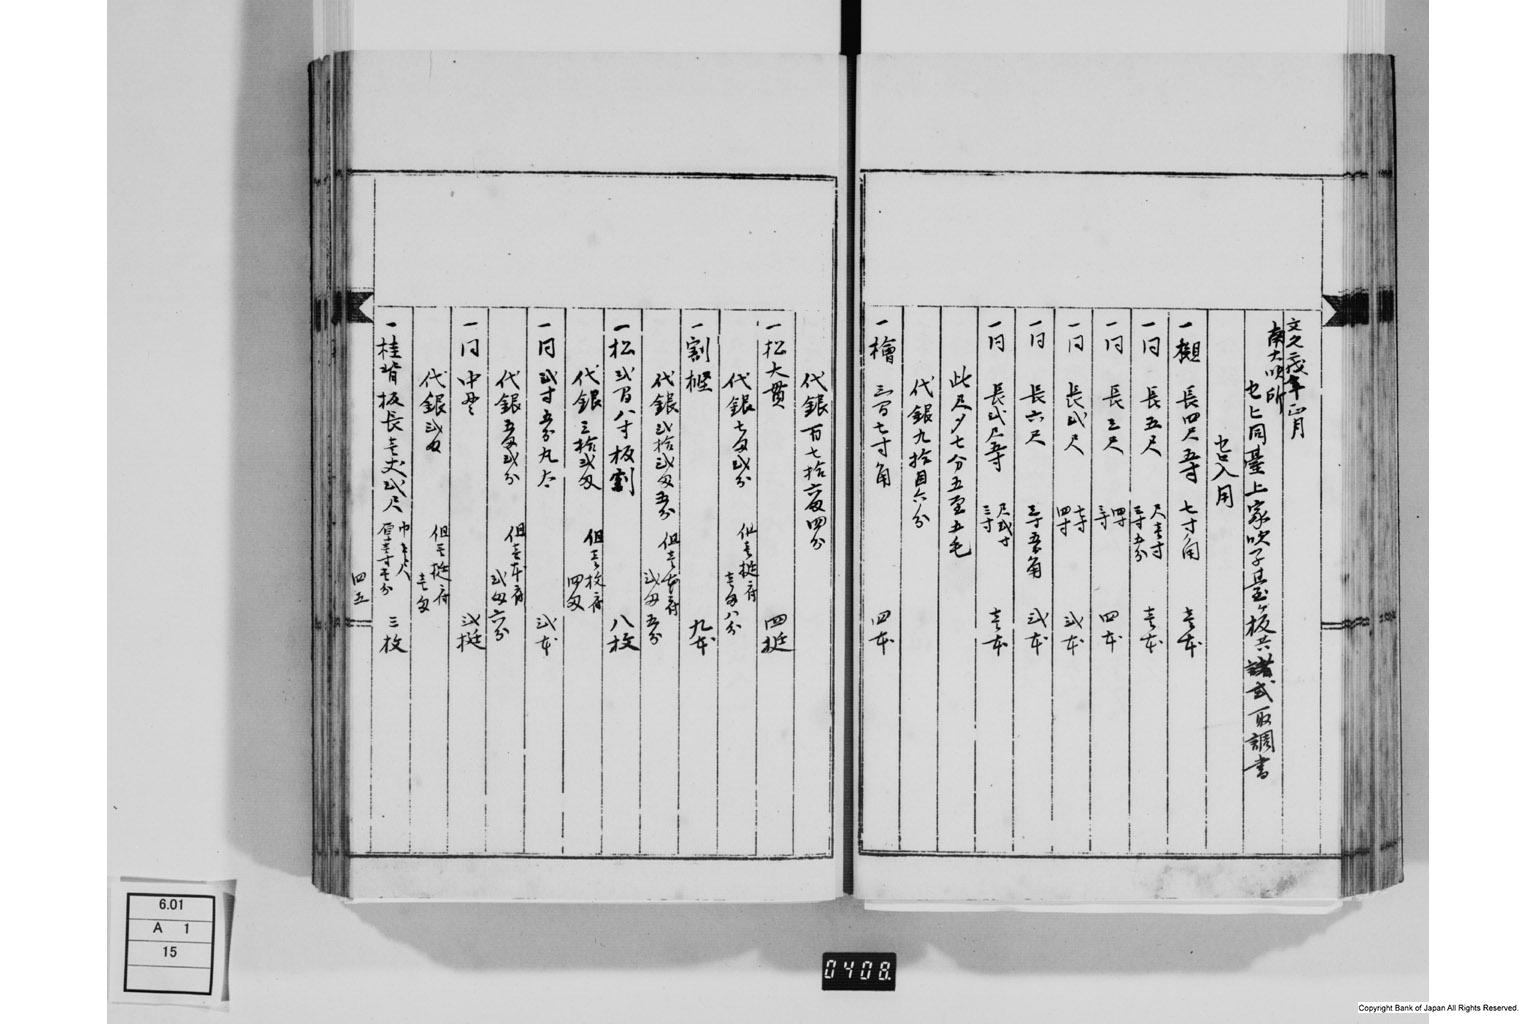 南大吹所
セ上同臺上家吹子基臺板共諸式取調書
セ口入用
一槻 長四尺五寸 七寸角 壱本
一同 長五尺 尺壱寸 三寸五分 壱本
一同 長三尺 四寸 三寸 四本
一同 長弐尺 七寸 四寸 弐本
一同 長六尺 三寸五分角 弐本
一同 長弐尺五寸 尺弐寸 三寸 壱本
此尺〆七分五厘五毛
代銀九拾目六分
一檜 三間七寸角 四本
代銀百七拾六匁四分
一松大貫 四挺
代銀七匁弐分 但壱挺ニ付 壱匁八分
一割樫 九本
代銀弐拾弐匁五分 但壱本ニ付 弐匁五分
一松弐間八寸板割 八枚
代銀三拾弐匁 但壱枚ニ付 四匁
一同弐寸五分丸太 弐本
代銀五匁弐分 但壱本ニ付 弐匁六分
一同中貫 弐挺
代銀弐匁 但壱挺ニ付 壱匁
一桂背板長壱丈弐尺 巾壱尺 厚壱寸五分 三枚
四五
6.01
A 1
15
0408.
Copyright Bank of Japan All Rights Reserved.